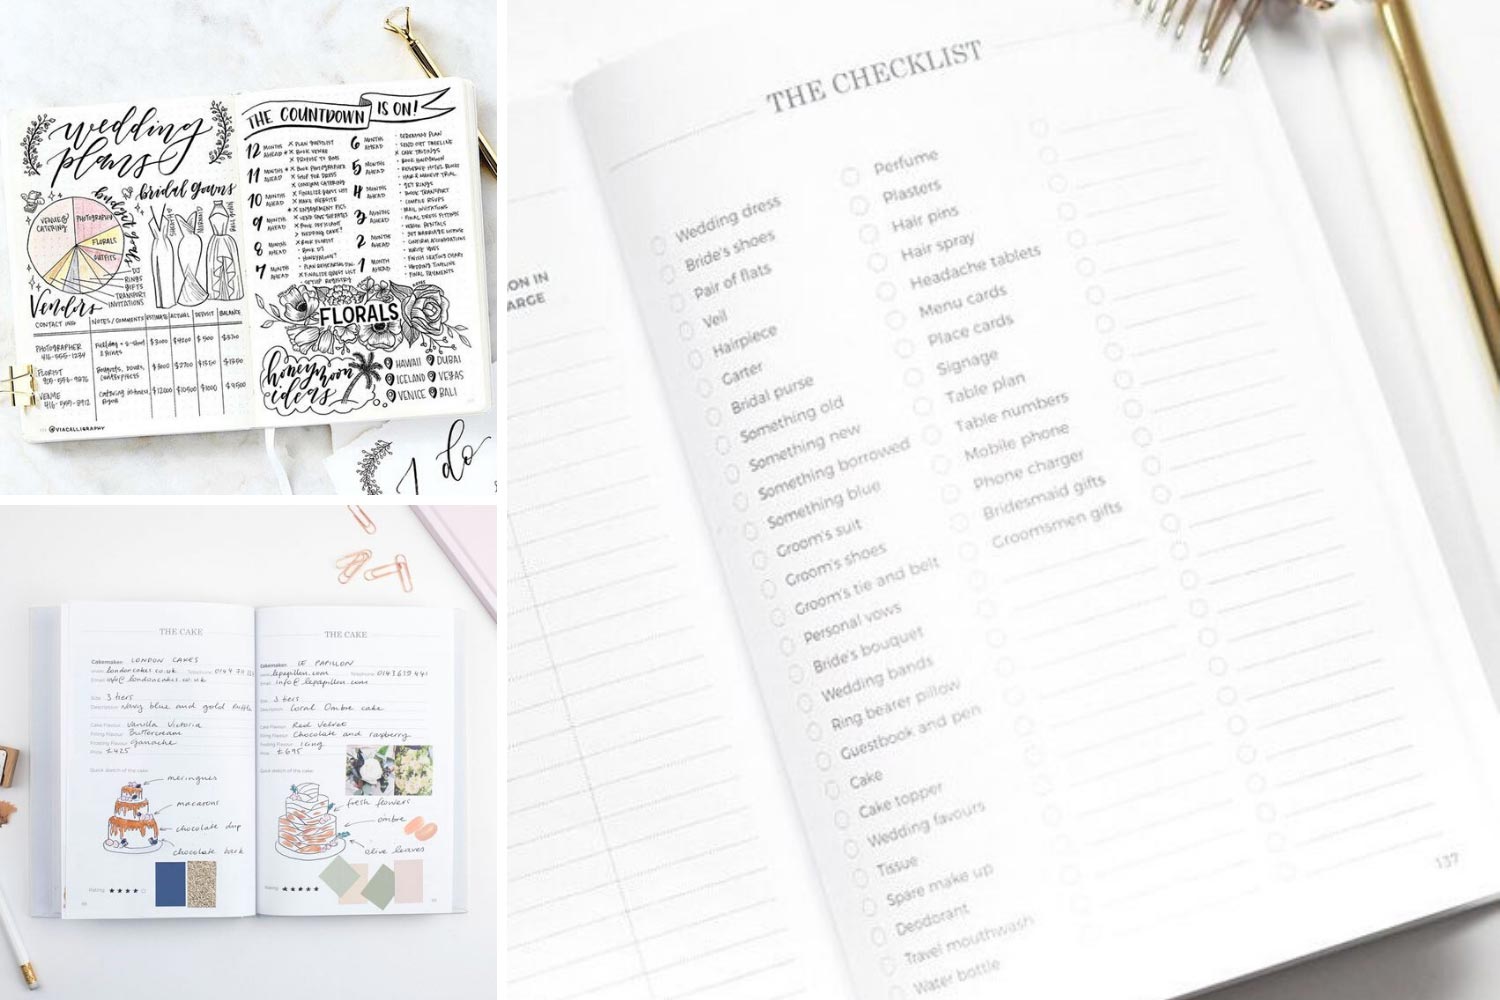 wedding plans
budget
bridal gowns
VENUE & CATERING
PHOTOGRAPHY
FLORALS
OUTFITS
DJ
RINGS
GIFTS
TRANSPORT
INVITATIONS
Vendors
CONTACT INFO
NOTES/COMMENTS
ESTIMATE
ACTUAL
DEPOSIT
BALANCE
PHOTOGRAPHER
416-555-1234
FLORIST
VENUE
@VIACALLIGRAPHY
THE COUNTDOWN IS ON!
12 MONTHS AHEAD
BOOK VENUE
11 MONTHS AHEAD
BOOK PHOTOGRAPHER
SHOP FOR DRESS
10 MONTHS AHEAD
FINALIZE GUEST LIST
MAKE WEBSITE
ENGAGEMENT PICS
9 MONTHS AHEAD
WEDDING CAKE?
8 MONTHS AHEAD
BOOK FLORIST
BOOK DJ
HONEYMOON?
7 MONTHS AHEAD
SETUP REGISTRY
6 MONTHS AHEAD
CEREMONY PLAN
CAKE TASTINGS
5 MONTHS AHEAD
4 MONTHS AHEAD
GET RINGS
BOOK TRANSPORT
3 MONTHS AHEAD
MAIL INVITATIONS
2 MONTHS AHEAD
1 MONTH AHEAD
WEDDING TIMELINE
FINAL PAYMENTS
FLORALS
honeymoon ideas
HAWAII
DUBAI
ICELAND
VEGAS
VENICE
BALI
I do
THE CAKE
Cakemaker: LONDON CAKES
londoncakes.co.uk
Email: info@londoncakes.co.uk
Size: 3 tiers
Description: Navy blue and gold ruffle
Cake Flavour: Vanilla Victoria
Filling Flavour: Buttercream
Frosting Flavour: Ganache
Price: £425
Quick sketch of the cake:
meringues
macarons
chocolate drip
chocolate bark
Rating:
THE CAKE
Cakemaker: LE PAPILLON
lepapillon.com Telephone: 0143 619 441
Email: info@lepapillon.com
Size: 3 tiers
Description: Coral Ombre cake
Cake Flavour: Red Velvet
Filling Flavour: Chocolate and raspberry
Frosting Flavour: Icing
Price: £695
Quick sketch of the cake:
fresh flowers
ombre
olive leaves
Rating:
ON IN
ARGE
THE CHECKLIST
Wedding dress
Bride's shoes
Pair of flats
Veil
Hairpiece
Garter
Bridal purse
Something old
Something new
Something borrowed
Something blue
Groom's suit
Groom's shoes
Groom's tie and belt
Personal vows
Bride's bouquet
Wedding bands
Ring bearer pillow
Guestbook and pen
Cake
Cake topper
Wedding favours
Tissue
Spare make up
Deodorant
Travel mouthwash
Water bottle
Perfume
Plasters
Hair pins
Hair spray
Headache tablets
Menu cards
Place cards
Signage
Table plan
Table numbers
Mobile phone
Phone charger
Bridesmaid gifts
Groomsmen gifts
137